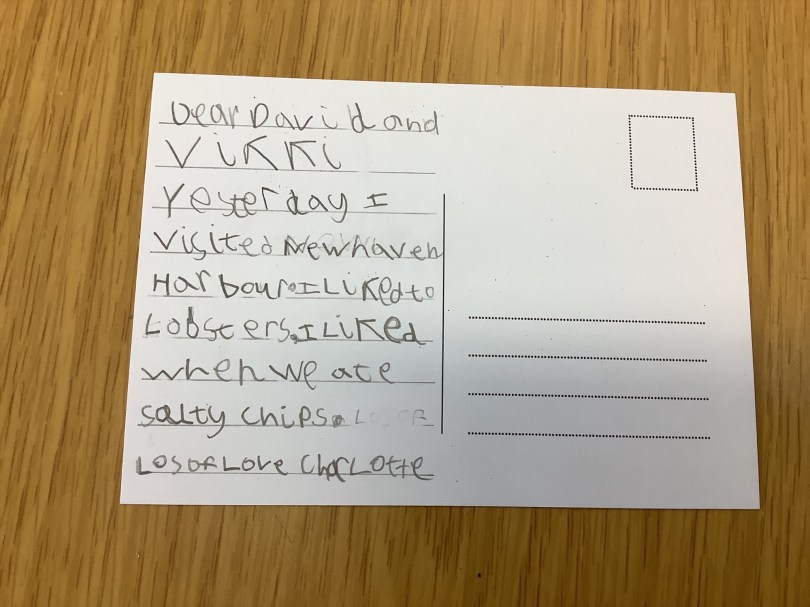 Dear David and
Vikki
Yesterday I
visited Newhaven
Harbour. I Liked to
Lobsters. I Liked
when we ate
salty chips.
Los of Love Charlotte